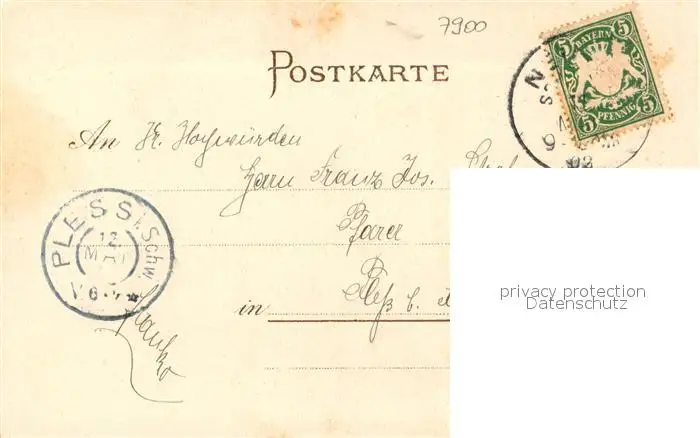 7900
POSTKARTE
5 BAYERN 5
5 PFENNIG 5
N
9
02
An Hr. Hochwürden
Herrn Franz Jos.
Pfarer
PLESS i. Schw.
12
MAI
V 6-7
in Pleß b.
Franko
privacy protection
Datenschutz